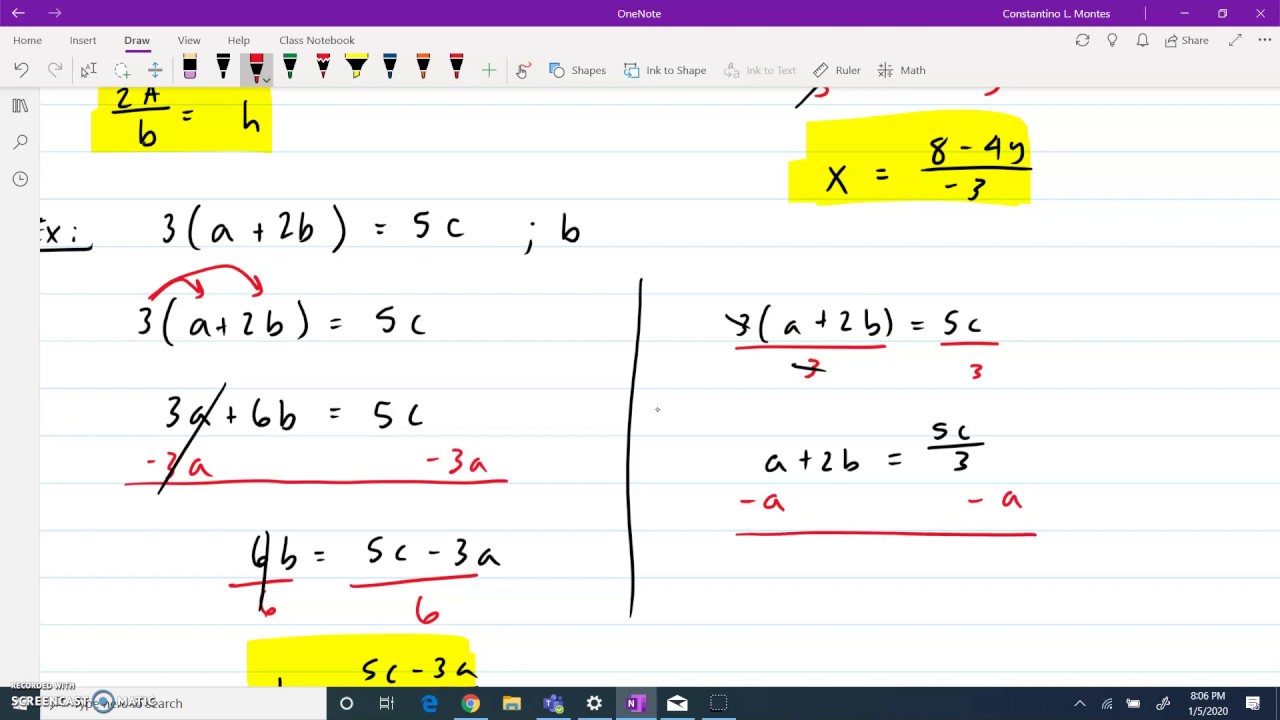 OneNote
Constantino L. Montes
Home Insert Draw View Help Class Notebook
Share
Shapes Ink to Shape Ink to Text Ruler Math
2A
b
= h
x = 8 - 4y
-3
Ex: 3(a + 2b) = 5c ; b
3(a + 2b) = 5c
3a + 6b = 5c
-3a -3a
6b = 5c - 3a
6 6
5c - 3a
3(a + 2b) = 5c
3 3
a + 2b = 5c
3
-a -a
RECORDED WITH
SCREENCAST MATIC
here to search
8:06 PM
1/5/2020